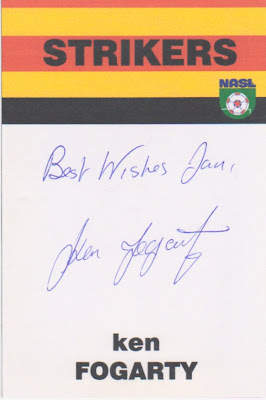 STRIKERS
NASL
Best Wishes Jan,
Ken Fogarty
ken
FOGARTY